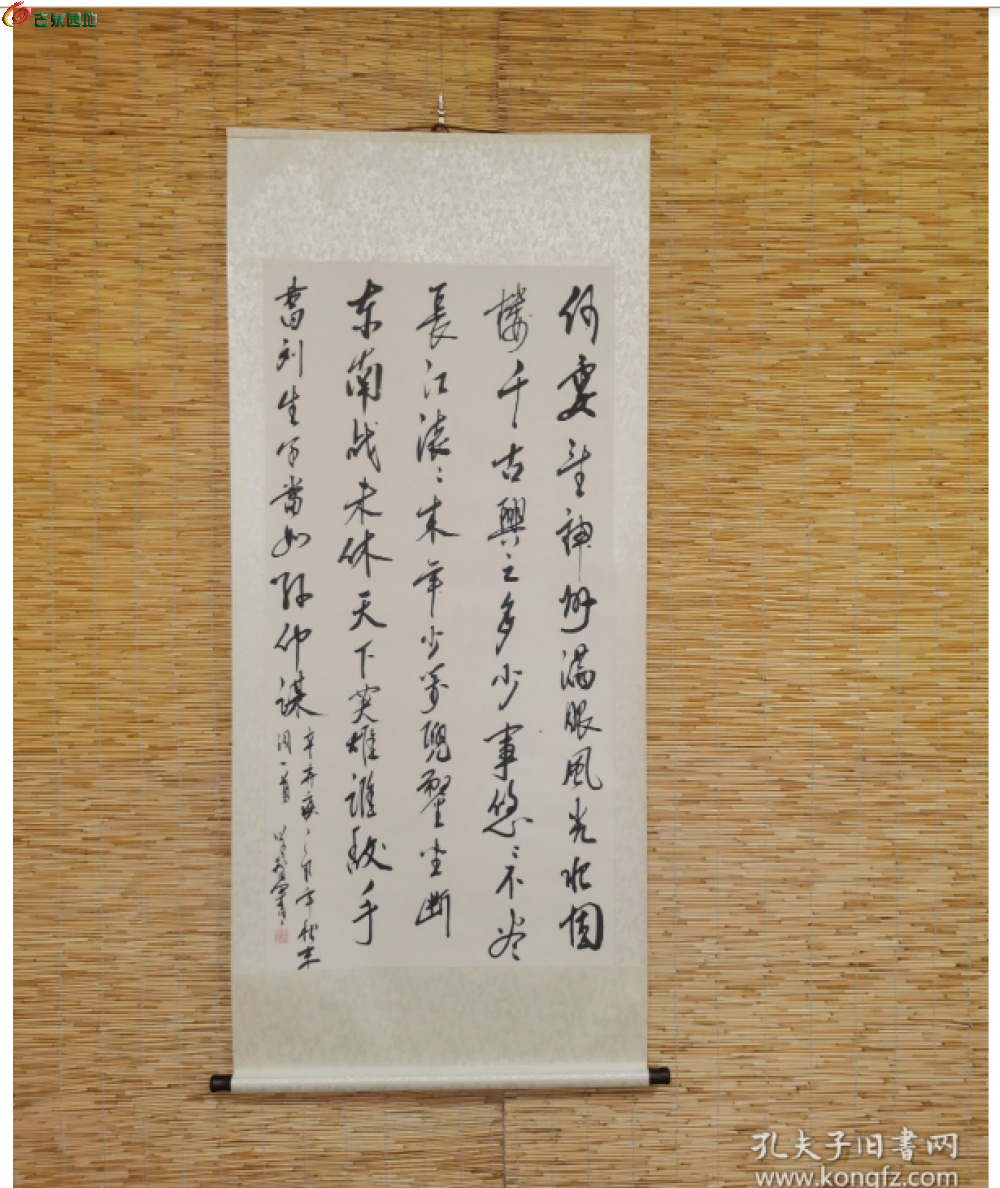 古泉园地
何處望神州满眼風光北固
楼千古興亡多少事悠〻不尽
長江滚〻来年少萬兜鍪坐断
东南战未休天下英雄誰敌手
曹刘生子當如孙仲謀
辛弃疾 年秋末
词一首
孔夫子旧书网
www.kongfz.com